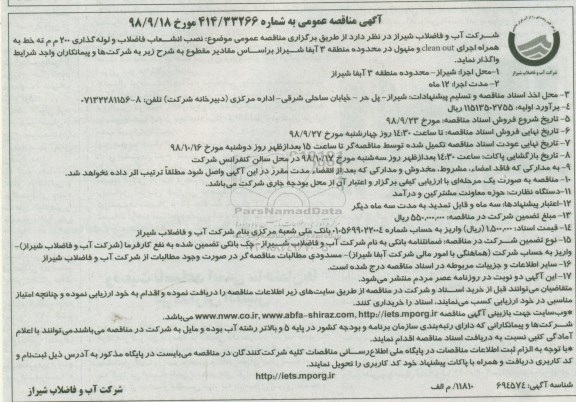 آگهی مناقصه عمومی به شماره ۴۱۴/۳۳۲۶۶ مورخ ۹۸/۹/۱۸
شرکت آب و فاضلاب شیراز در نظر دارد از طریق برگزاری مناقصه عمومی موضوع: نصب انشعاب فاضلاب و لوله گذاری ۲۰۰ م م ته خط به
همراه اجرای clean out و منهول در محدوده منطقه ۳ آبفا شیراز براساس مقادیر مقطوع به شرح زیر به شرکت‌ها و پیمانکاران واجد شرایط
واگذار نماید.
شرکت آب و فاضلاب شیراز
۱-محل اجرا: شیراز- محدوده منطقه ۳ آبفا شیراز
۲- مدت اجرا: ۱۲ ماه
۳- محل اخذ اسناد مناقصه و تسلیم پیشنهادات: شیراز- پل حر - خیابان ساحلی شرقی- اداره مرکزی (دبیرخانه شرکت) تلفن: ۸-۰۷۱۳۲۲۸۱۱۵۶
۴- برآورد اولیه: ۱۱۵۱۳۵۰۲۷۵۵ ریال
۵- تاریخ شروع فروش اسناد مناقصه: مورخ ۹۸/۹/۲۳
۶- تاریخ نهایی فروش اسناد مناقصه: تا ساعت ۱۴:۳۰ روز چهارشنبه مورخ ۹۸/۹/۲۷
۷- تاریخ نهایی عودت اسناد مناقصه تکمیل شده توسط مناقصه‌گر تا ساعت ۱۵ بعدازظهر روز دوشنبه مورخ ۹۸/۱۰/۱۶
۸- تاریخ بازگشایی پاکات: ساعت ۱۴:۳۰ بعدازظهر روز سه‌شنبه مورخ ۹۸/۱۰/۱۷ در محل سالن کنفرانس شرکت
۹- به مدارکی که فاقد امضاء، مشروط، مخدوش و مدارکی که بعد از انقضاء مدت مقرر در این آگهی واصل شود مطلقاً ترتیب اثر داده نخواهد شد.
۱۰- مناقصه به صورت یک مرحله‌ای با ارزیابی کیفی برگزار و اعتبار آن از محل بودجه جاری شرکت می‌باشد.
۱۱-دستگاه نظارت: حوزه معاونت مشترکین و درآمد
۱۲-اعتبار پیشنهادها: سه ماه و قابل تمدید به مدت سه ماه دیگر
۱۳- مبلغ تضمین شرکت در مناقصه: ۵۵۰,۰۰۰,۰۰۰ ریال
۱۴- قیمت اسناد: ۱,۵۰۰,۰۰۰ (ریال) واریز به حساب شماره ۰۱۰۵۶۹۹۰۲۲۰۰۴ بانک ملی شعبه مرکزی بنام شرکت آب و فاضلاب شیراز
۱۵- نوع تضمین شرکت در مناقصه: ضمانتنامه بانکی به نام شرکت آب و فاضلاب شیراز- چک بانکی تضمین شده به نفع کارفرما (شرکت آب و فاضلاب شیراز)-
واریز به حساب شرکت (هماهنگی با امور مالی شرکت آبفا شیراز)- مسدودی مطالبات مناقصه گر در صورت وجود مطالبات از شرکت آب و فاضلاب شیراز
۱۶- سایر اطلاعات و جزییات مربوطه در اسناد مناقصه درج شده است.
۱۷- این آگهی دو نوبت در روزنامه عصر مردم منتشر می‌شود.
متقاضیان می‌توانند قبل از خرید اسناد و شرکت در مناقصه از طریق سایت‌های زیر اطلاعات مناقصه را دریافت نموده و اقدام به خود ارزیابی نموده و چنانچه امتیاز
مناسبی در خود ارزیابی کسب می‌نمایند، اسناد را خریداری کنند.
*وب‌سایت جهت بازبینی آگهی مناقصه www.nww.co.ir, www.abfa-shiraz.com, http://iets.mporg.ir می‌باشد.
شرکت‌ها و پیمانکارانی که دارای رتبه‌بندی سازمان برنامه و بودجه کشور در پایه ۵ و بالاتر رشته آب بوده و مایل به شرکت در مناقصه می‌باشند می‌توانند با اعلام
آمادگی کتبی نسبت به دریافت اسناد مناقصه اقدام نمایند.
*با توجه به الزام ثبت اطلاعات مناقصات در پایگاه ملی اطلاع‌رسانی مناقصات کلیه شرکت‌کنندگان در مناقصه می‌بایست در پایگاه مذکور به آدرس ذیل ثبت‌نام و
کد کاربری دریافت و همراه با پاکات پیشنهاد خود کد کاربری را تحویل نمایند.
http://iets.mporg.ir
شناسه آگهی: ۶۹۴۵۷۴ /۱۱۸۱۰ م الف
شرکت آب و فاضلاب شیراز
ParsNamadData